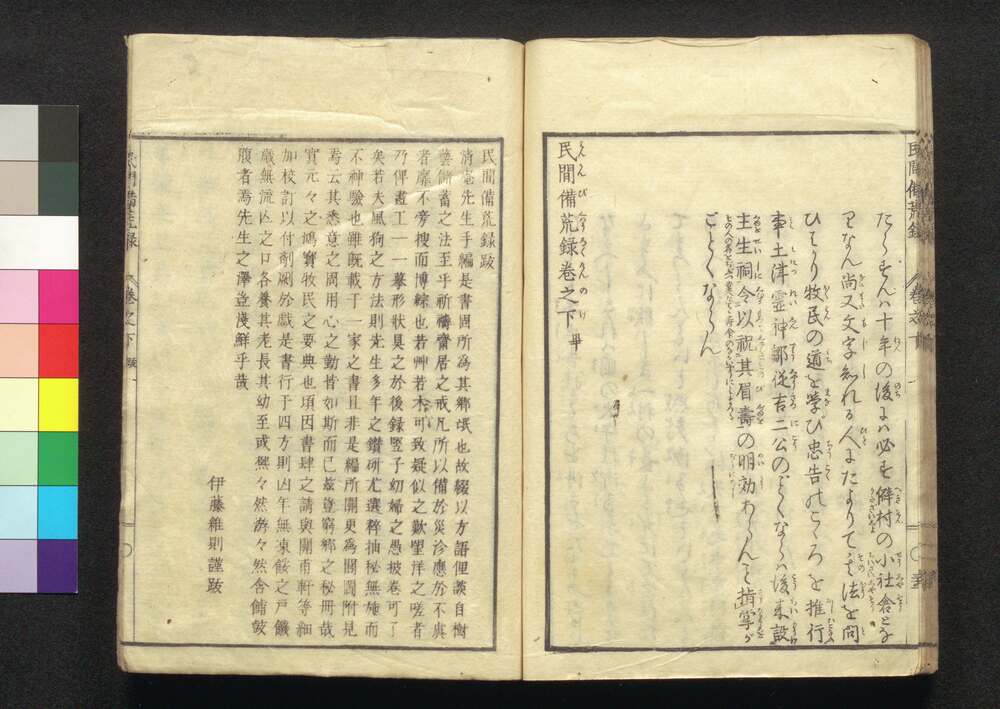 民間備荒録
たらずんハ十年の後にハ必ず僻村の小社倉となりなん尚又文字知れる人にたよりて其法を問
ひはかり牧民の道を学び忠告のこゝろを推行
事土津霊神鄒從吉二公のごとくならハ後来設
主生祠令以祝其眉壽の明効あらんこと指掌が
ごとくならん
民間備荒録卷之下畢
民間備荒録跋
清菴先生手編是書固所為其鄉氓也故綴以方語俚談自樹
藝儲蓄之法至乎祈禱齋居之戒凡所以備於災沴應於不虞
者靡不旁搜而博綜也若艸若木可致疑似之歎望洋之嗟者
乃俾畫工一一摹形狀具之於後録竪子幼婦之愚披卷可了
矣若夫風狗之方法則先生多年之鑽研尤選粹抽秘無施而
不神驗也雖既載于一家之書且非是編所關更為闕附見
焉云其悉意之周用心之勤皆如斯而已豈窮鄉之秘冊哉
實元々之鴻寶牧民之要典也頃因書肆之請與關甫軒等細
加校訂以付剞劂於戲是書行于四方則凶年無凍餒之戶饑
歲無流亡之口各養其老長其幼至或熙々然游々然含餔鼓
腹者焉先生之澤豈淺鮮乎哉
伊藤維則謹跋
卷之下
跋